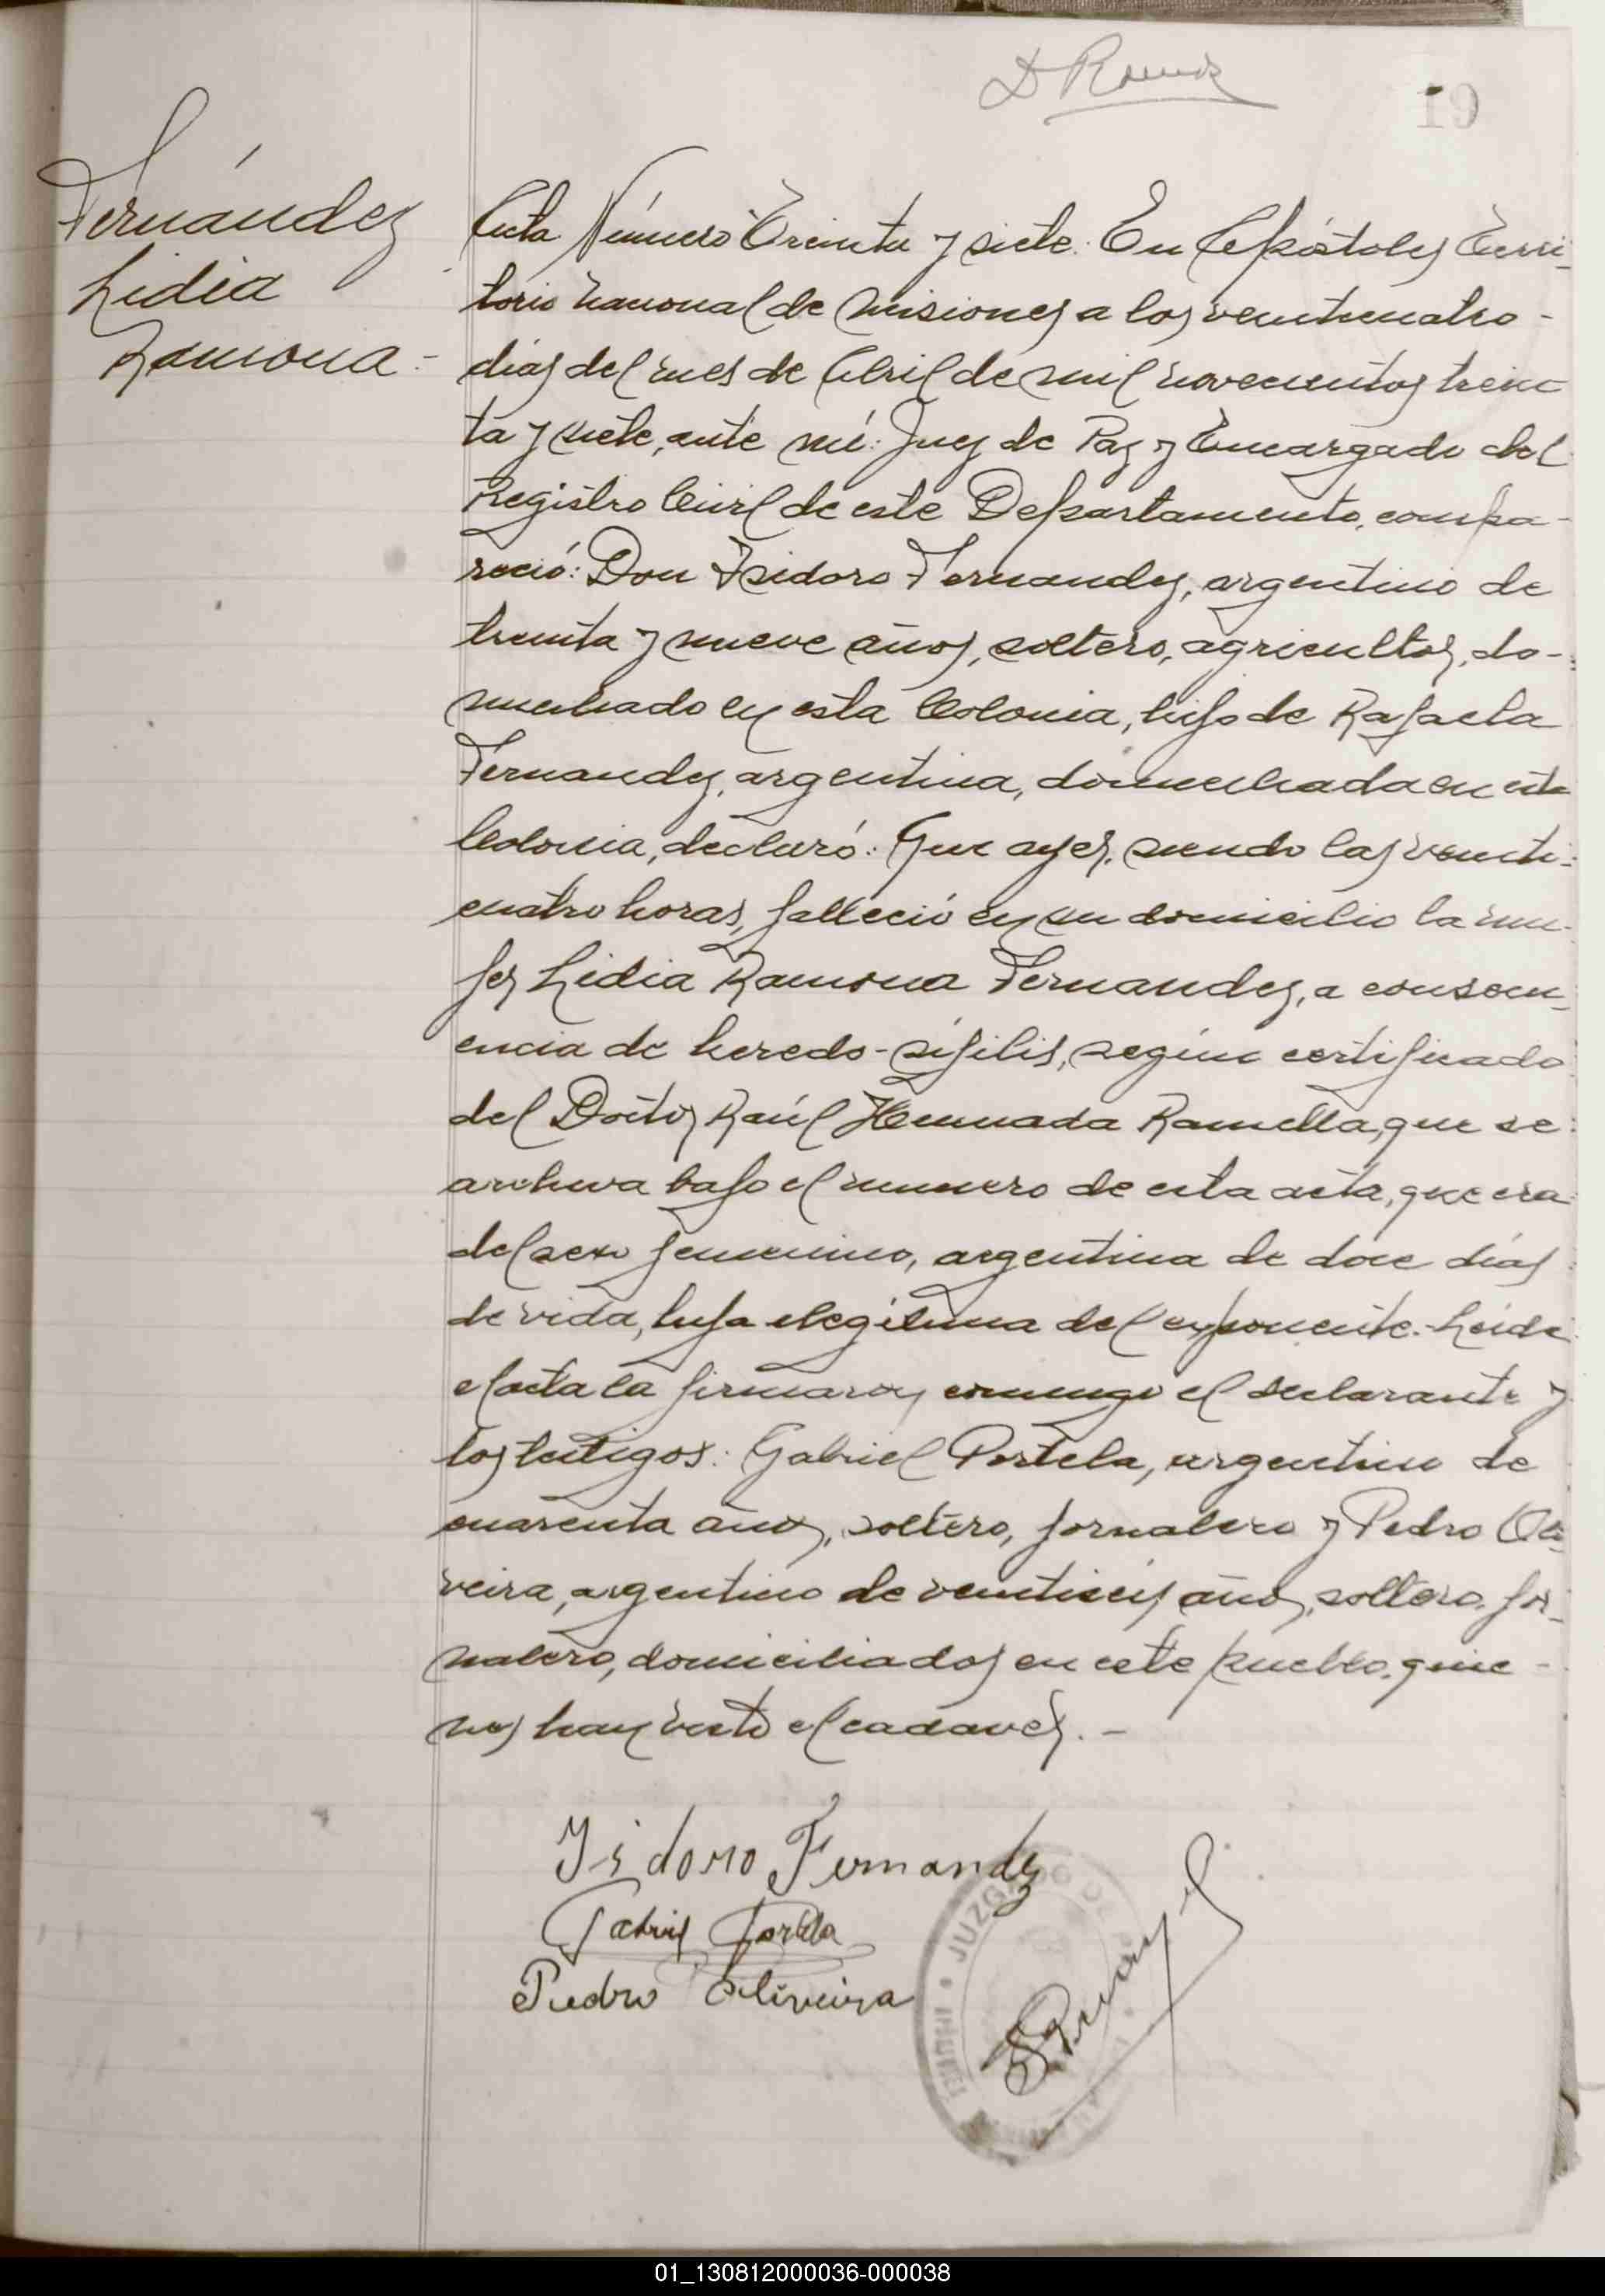 19
Fernández
Lidia
Ramona-
Acta Número Treinta y siete: En Apóstoles Terri-
torio nacional de Misiones a los veinticuatro-
días del mes de Abril de mil novecientos trein-
ta y siete, ante mí: Juez de Paz y Encargado del
Registro Civil de este Departamento, compa-
reció: Don Isidoro Fernandez, argentino de
treinta y nueve años, soltero, agricultor, do-
miciliado en esta Colonia, hijo de Rafaela
Fernandez, argentina, domiciliada en esta
Colonia, declaró: Que ayer, siendo las veinti-
cuatro horas, falleció en su domicilio la mu-
jer Lidia Ramona Fernandez, a consecu-
encia de heredo-sífilis, según certificado
del Doctor Raúl Ramella, que se
archiva bajo el numero de esta acta, que era
del sexo femenino, argentina de doce días
de vida, hija ilegítima del exponente.- Leida
el acta la firmaron conmigo el declarante y
los testigos: Gabriel Portela, argentino de
cuarenta años, soltero, jornalero y Pedro Oli-
veira, argentino de veintiseis años, soltero, jor-
nalero, domiciliados en este pueblo, quie-
nes han visto el cadaver.-
Isidoro Fernandez
Gabriel Portela
Pedro Oliveira
JUZGADO DE
01_130812000036-000038